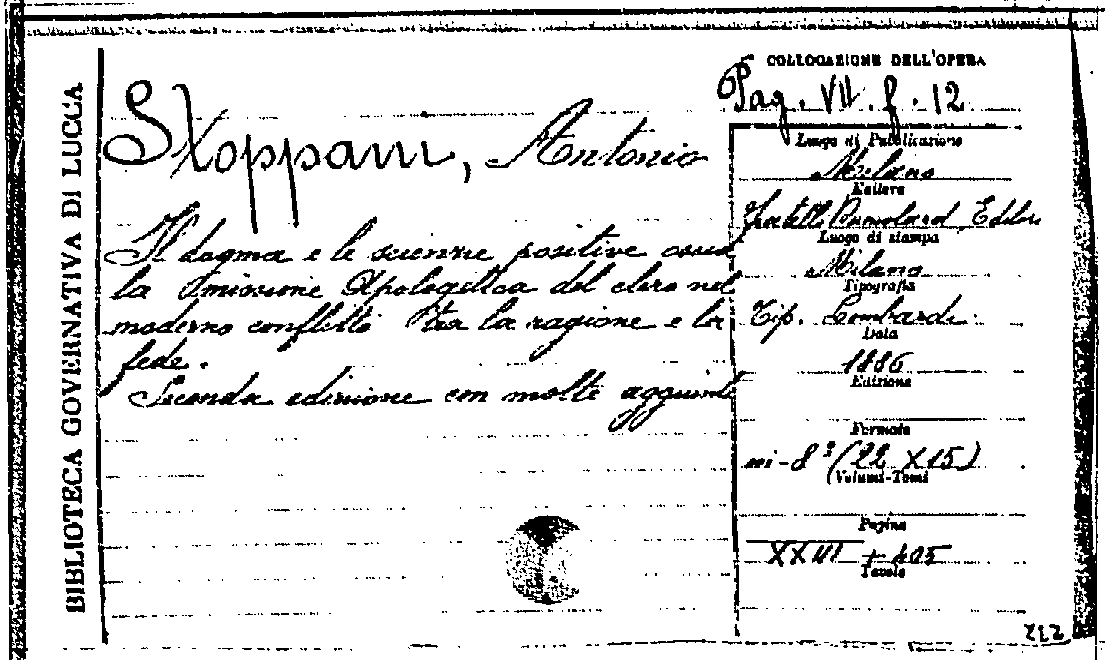 BIBLIOTECA GOVERNATIVA DI LUCCA
COLLOCAZIONE DELL'OPERA
Pag. VII. f. 12
Stoppani, Antonio
Luogo di Pubblicazione
Milano
Editore
Fratelli Dumolard Editori
Luogo di stampa
Milano
Tipografia
Tip. Lombardi
Data
1886
Edizione
Formato
in-8° (22 X 15)
Volumi-Tomi
Pagine
XXIII + 405
Tavole
Il dogma e le scienze positive ossia
la missione Apologetica del clero nel
moderno conflitto tra la ragione e la
fede.
Seconda edizione con molte aggiunte